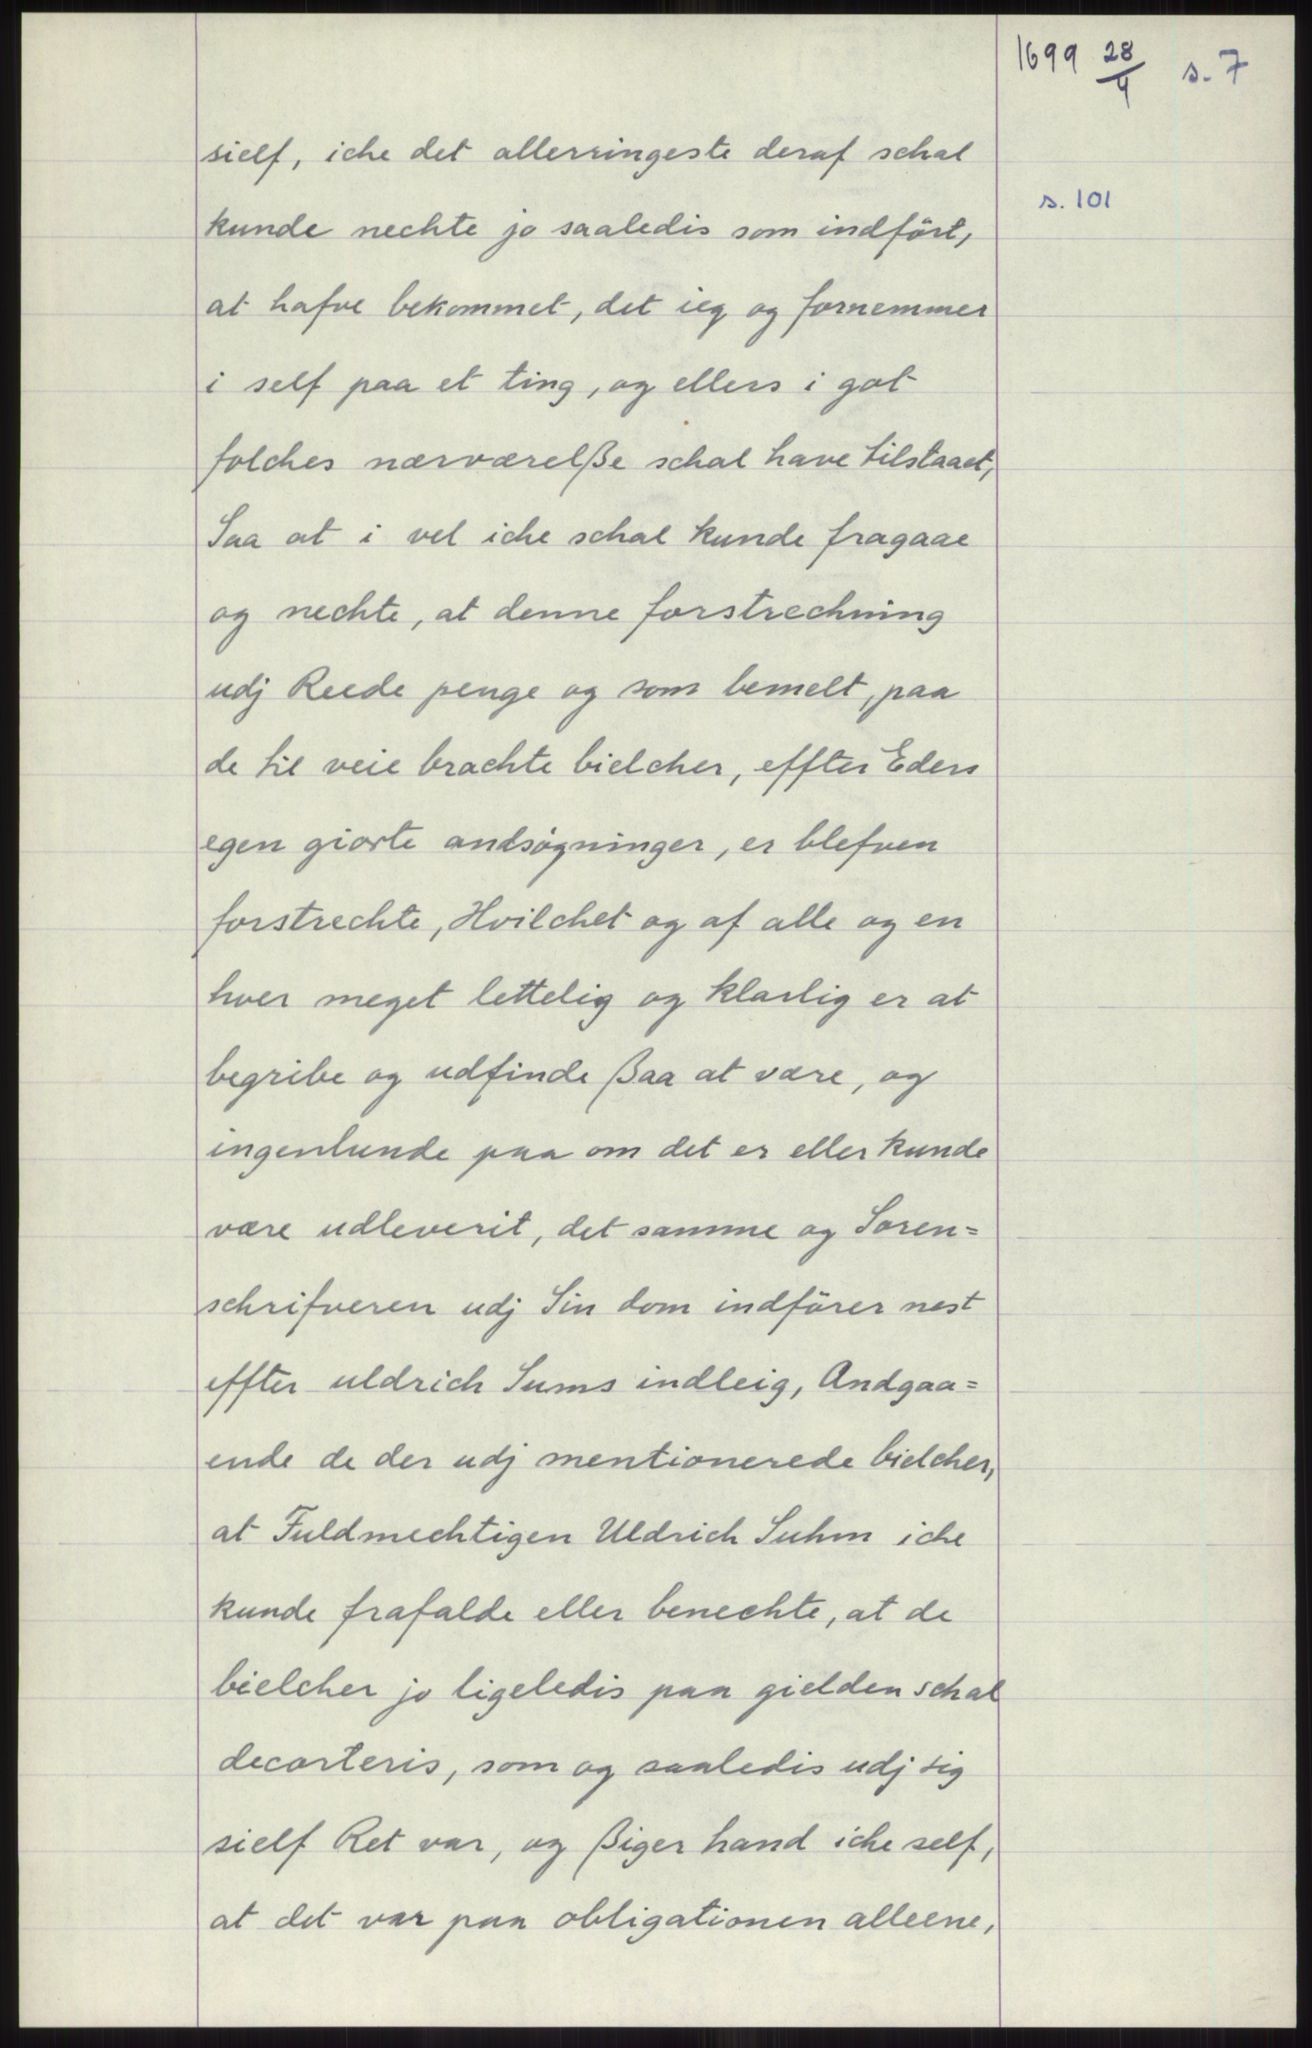 1699 28/4 s. 7
s. 101
sielf, iche det allerringeste deraf schal
kunde nechte jo saaledis som indfört,
at hafve bekommet, det ieg og fornemmer
i self paa et ting, og ellers i got
folches nærværelße schal have tilstaaet,
Saa at i vel iche schal kunde fragaae
og nechte, at denne forstrechning
udj Reede penge og som bemelt, paa
de til veie brachte bielcher, effter Eders
egen giorte andsøgninger, er blefven
forstrechte, Hvilchet og af alle og en
hver meget lettelig og klarlig er at
begribe og udfinde ßaa at være, og
ingenlunde paa om det er eller kunde
være udleverit, det samme og Soren=
schrifveren udj Sin dom indförer nest
effter uldrich Sums indleig, Andgaa=
ende de der udj mentionerede bielcher,
at Fuldmechtigen Uldrich Suhm iche
kunde frafalde eller benechte, at de
bielcher jo ligeledis paa gielden schal
decorteris, som og saaledis udj sig
sielf Ret var, og ßiger hand iche self,
at det var paa obligationen alleene,